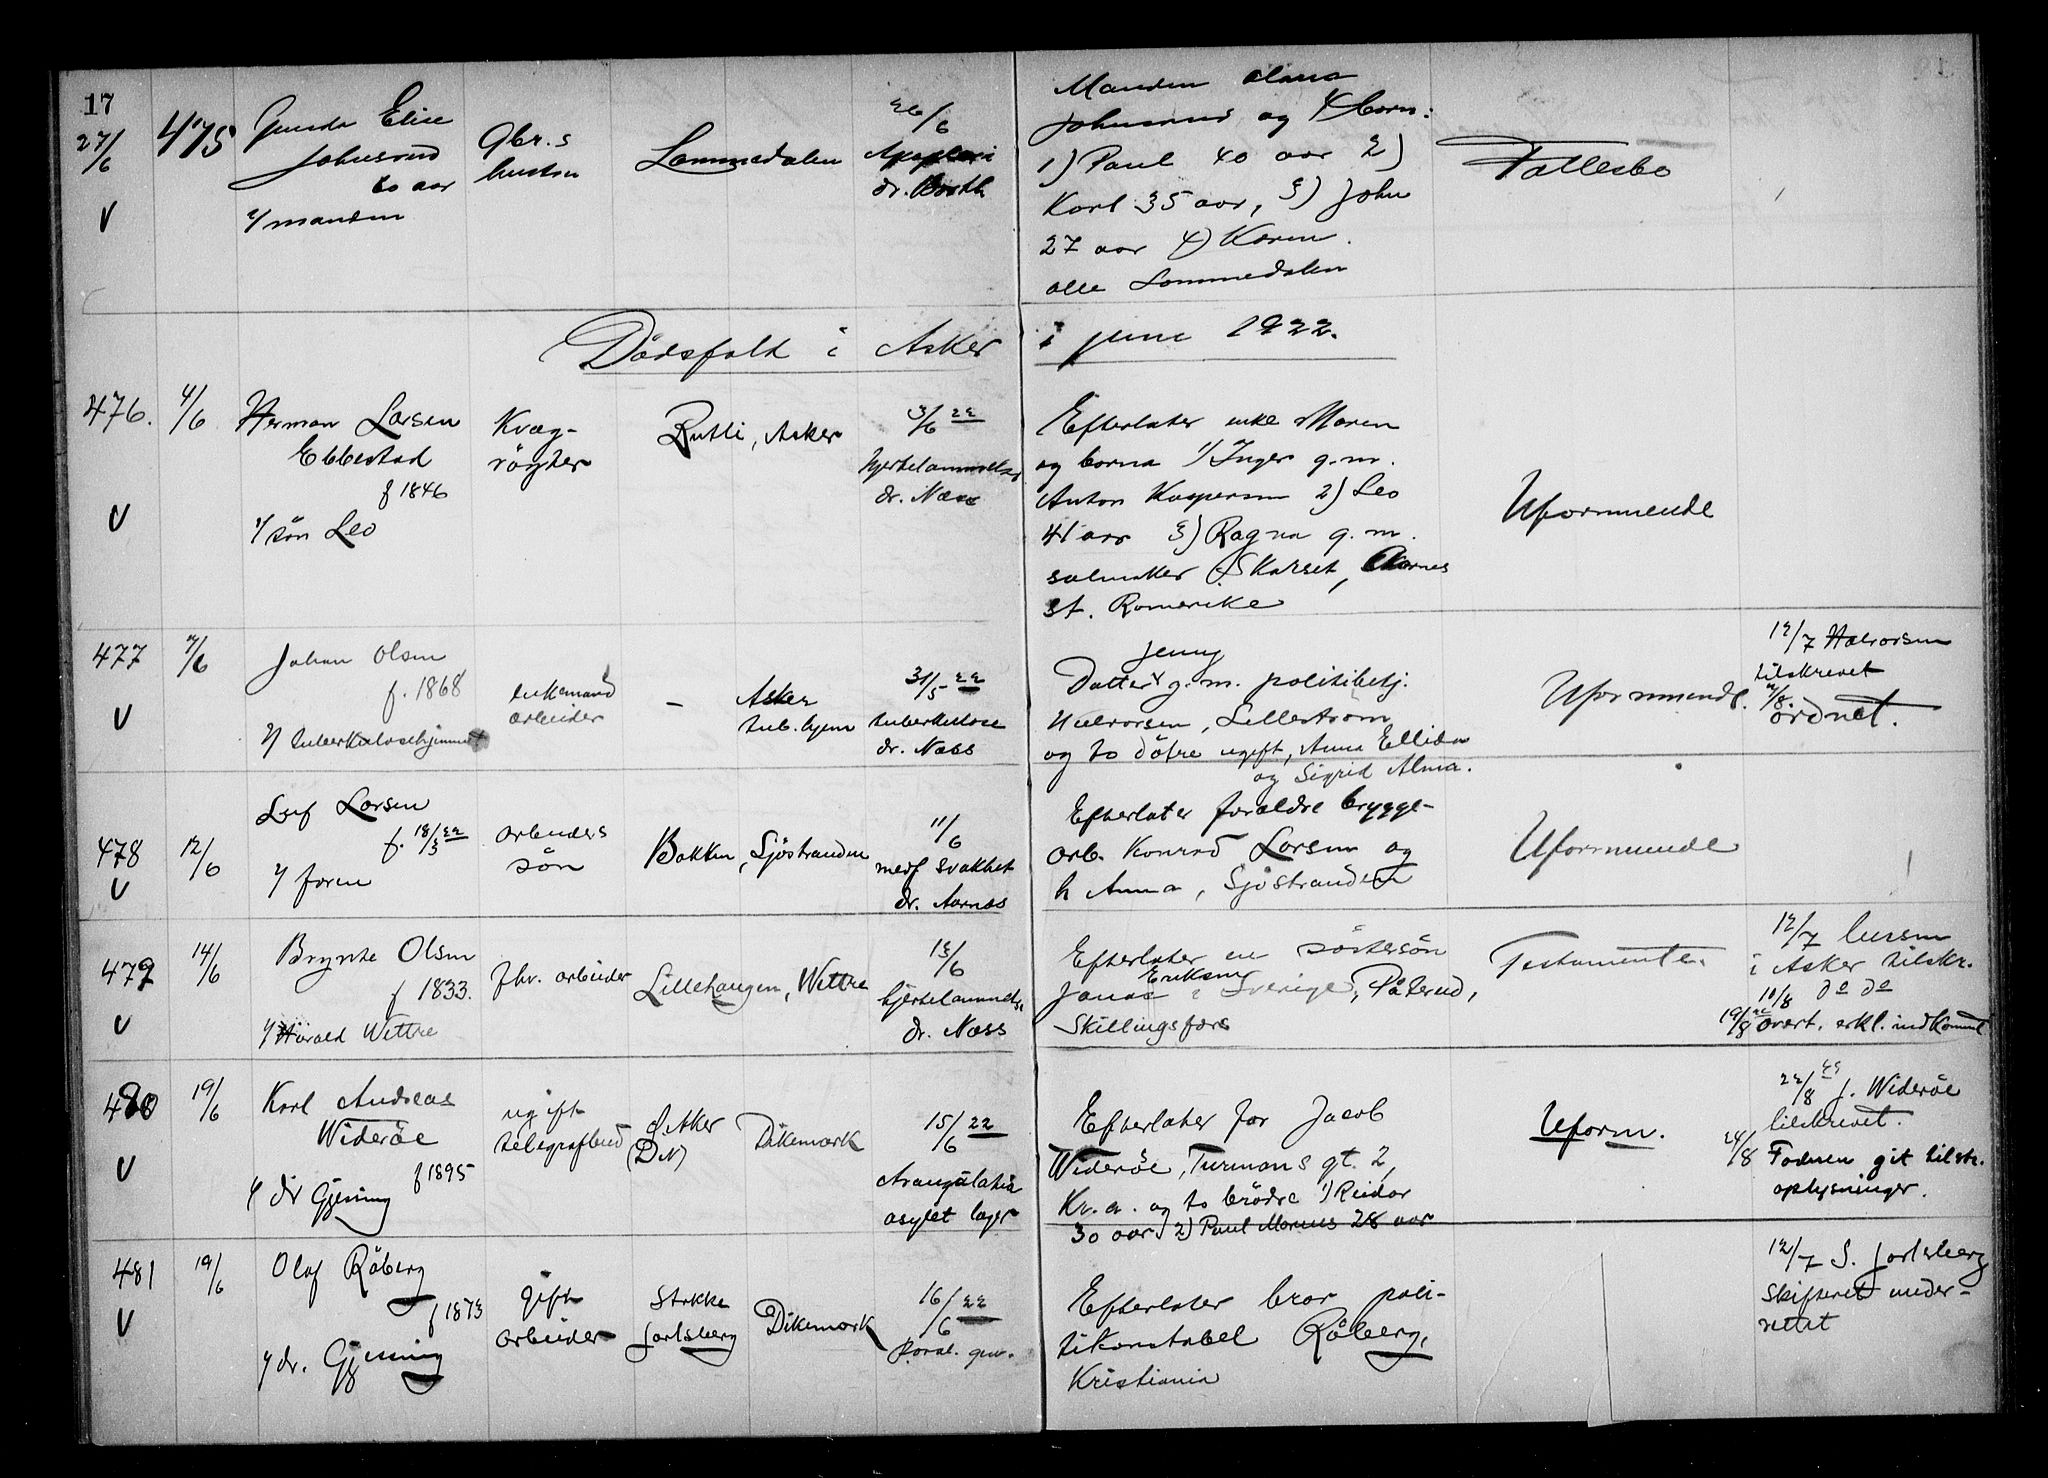 17
27/6
475
V
Gunda Elise
Johnsrud
60 aar
v/ manden
Gbr.s
hustru
Lommedalen
26/6
Apoplexi
dr. Borth
Manden
Johnsrud og 4 born:
1) Paul 40 aar 2)
Karl 35 aar, 3) John
27 aar 4) Karen.
alle Lommedalen
Fællesbo
Dödsfald i Asker i juni 1922.
476.
4/6
V
Herman Larsen
Ebbestad
f 1846
v/ sön Leo
Kvæg-
rögter
Rustli, Asker
3/6 22
hjertelammelse
dr. Næss
Efterlater enke Maren
og borna 1) Inger g.m.
Anton Kaspersen 2) Leo
41 aar 3) Ragna g.m.
salmaker Skarset, Aarnes
st. Romerike
Uformuende
477
7/6
V
Johan Olsen
f. 1868
v/ tuberkulosehjemmet
enkemand
arbeider
-
Asker
tub.hjem
31/5 22
tuberkulose
dr. Næss
Jenny
Datter g.m. politibetj.
Halvorsen, Lillestrøm
og to dötre ugift, Anna Ellida
og Sigrid Alma.
Uformuende.
12/7 Halvorsen
tilskrevet
/8. ordnet.
478
12/6
V
Leif Larsen
f. 18/3 22
v/ faren
arbeiders
sön
Bakken, Sjöstranden
11/6
medf svakhet
dr. Aarnæs
Efterlater forældre brygge-
arb. Konrad Larsen og
h Anna, Sjöstranden
Uformuende
479
14/6
V
Brynte Olsen
f 1833.
v/ Harald Wettre
fhv. arbeider
Lillehaugen, Wettre
13/6
hjertelammelse
dr. Næss
Efterlater en söstersön
Jonas Eriksen i Sverige, Påterud,
Skillingsfors
Testamente.
12/7 lensm
i Asker tilskr.
10/8 do do
19/8 22 overt. erkl. indkommet
480
19/6
V
Karl Andreas
Wideröe
f 1895
v/ dr Gjessing
ugift
telegrafbud
V. Aker
(D N)
Dikemark
15/6 22
strangulatio
asylet lager
Efterlater far Jacob
Wideröe, Turmans gt. 2,
Kr.a. og to brödre 1) Reidar
30 aar 2) Paul Marnus 28 aar
Uform.
22/8 22 J. Wideröe
tilskrevet.
24/8 Faderen git tilstr.
oplysninger.
481
19/6
V
Olaf Råberg
f 1873
v/ dr. Gjessing
gift
arbeider
Stokke
Jarlsberg
Dikemark
16/6 22
Paral. gen.
Efterlater bror poli-
tikonstabel Råberg,
Kristiania
12/7 S. Jarlsberg
skifteret under-
rettet